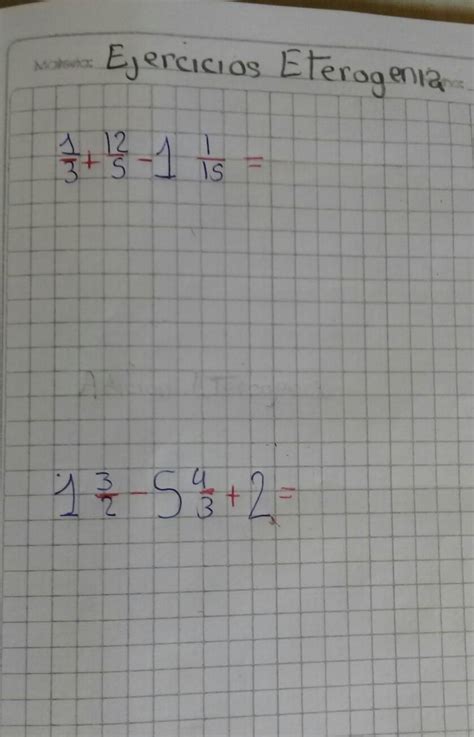 Ejercicios Eterogenia
1/3 + 12/5 - 1 1/15 =
1 3/2 - 5 4/3 + 2 =